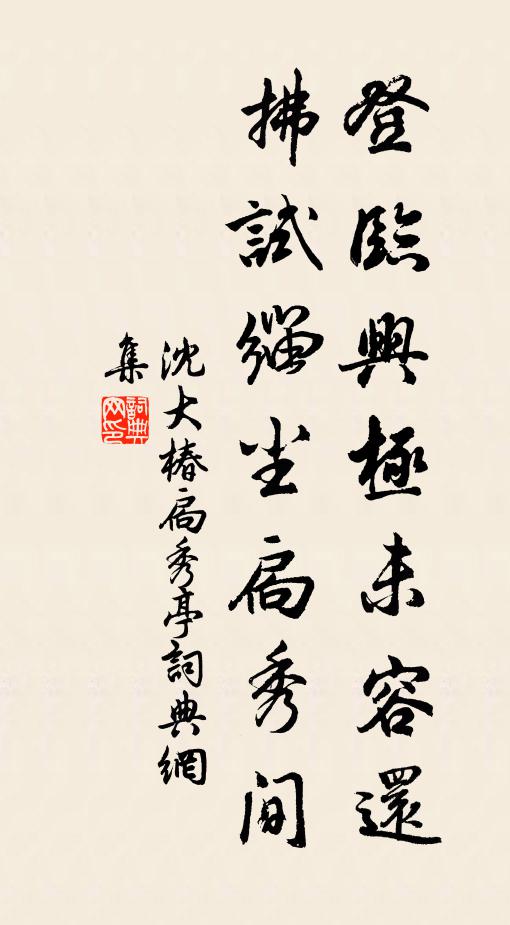 登臨興極未容還
拂試緇尘扃秀间
沈大椿扃秀亭詞典網
集
詞典网印